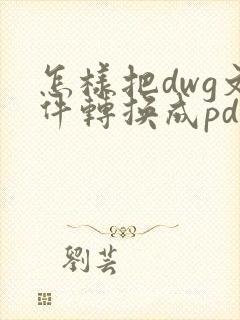 怎樣把dwg文
件轉換成pd
劉芸